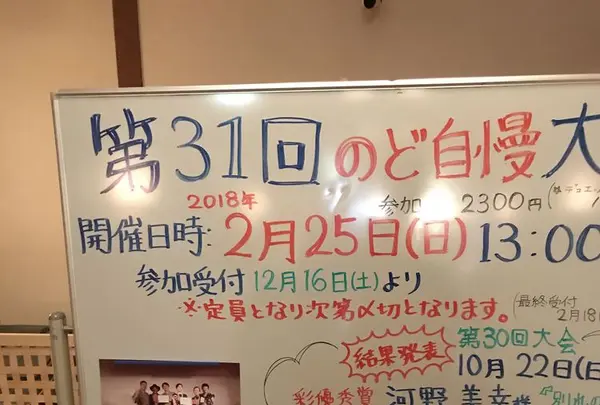 第31回 のど自慢大
2018年
参加 2300円
開催日時: 2月25日(日) 13:00
参加受付 12月16日(土)より
※定員となり次第〆切となります。
(最終受付
2月18日
結果発表
第30回大会
10月22日(日)
彩優秀賞 河野美幸様